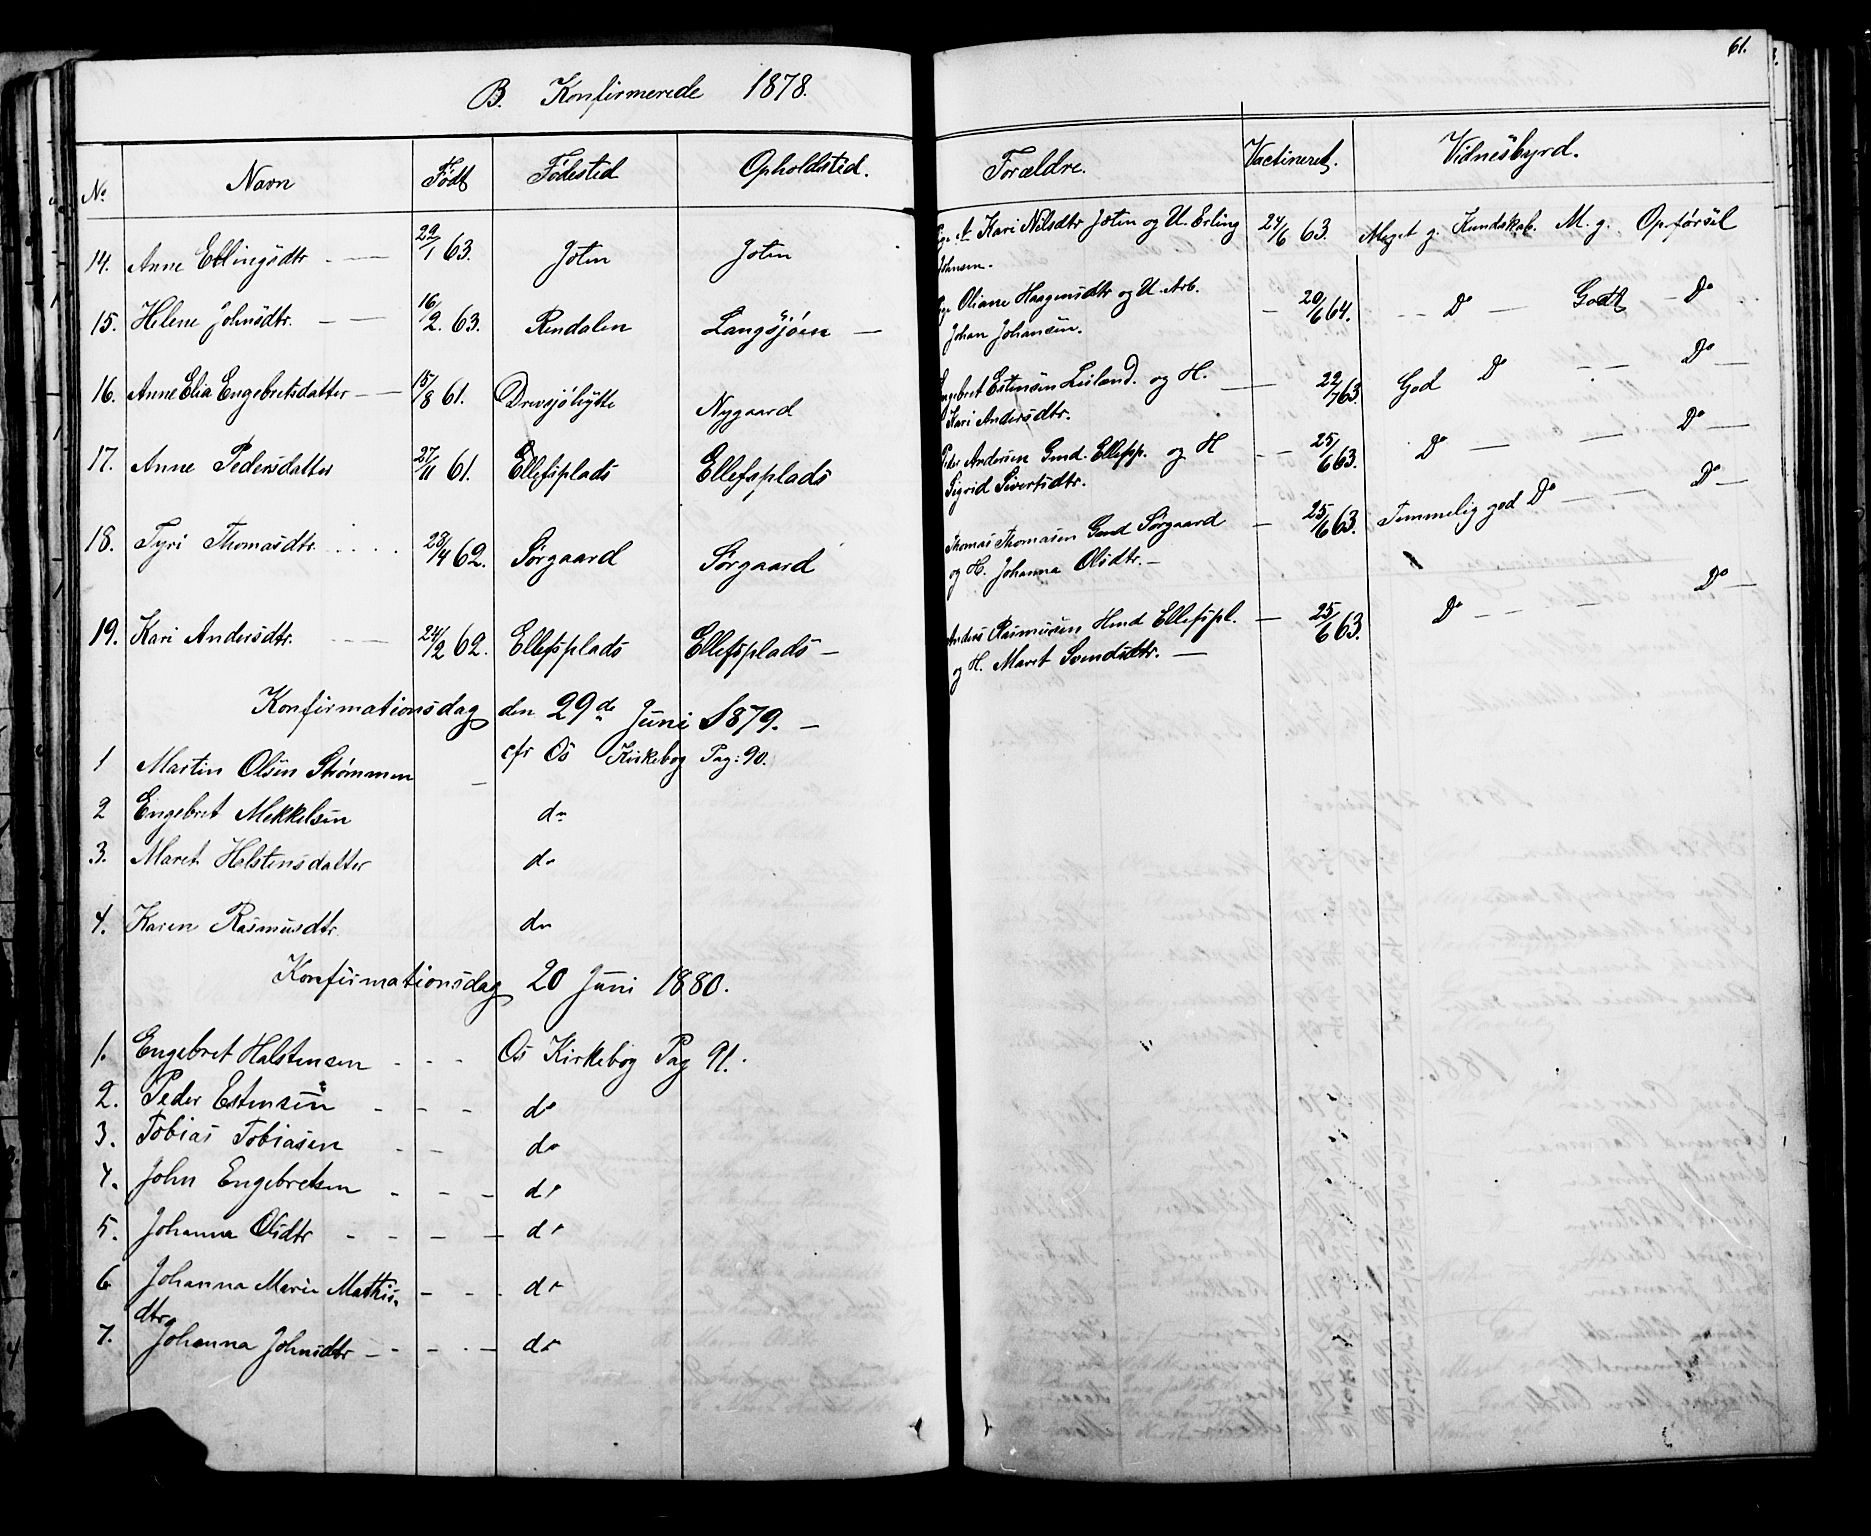 61.
B. Konfirmerede 1878.
No Navn Født Fødested Opholdsted. Forældre. Vaccineret. Vidnesbyrd.
14. Anne Erlingsdtr 29/1 63. Joten Joten Pge A Kari Nilsdtr Joten og U. Erling 24/6 63. Meget g. Kundskab. M. g. Opførsel
Johnsen.
15. Helene Johnsdtr. 16/2. 63. Rendalen Langsjøen Pge Oliane Haagensdtr og U. Arb. 20/6 64. Do Godt Do
Johan Johansen.
16. Anne Elia Engebretsdatter 15/8 61. Drevsjøhytte Nygaard Engebret Estensen Leiland. og H. 22/7 63. God Do Do
Kari Andersdtr.
17. Anne Pedersdatter 27/11 61. Ellefsplads Ellefsplads Peder Andersen Gmd. Ellefsp. og H 25/6 63. Do Do
Sigrid Sivertsdtr.
18. Tyri Thomasdtr. 28/4 62. Sørgaard Sørgaard Thomas Thomasen Gmd Sørgaard 25/6 63. Temmelig god Do Do
og H. Johanna Olsdtr.
19. Kari Andersdtr. 24/2 62. Ellefsplads Ellefsplads Anders Rasmusen Hmd Ellefspl. 25/6 63. Do Do
og H. Maret Svendsdtr.
Konfirmationsdag den 29de Juni 1879.
1 Martin Olsen Strømmen cfr Os Kirkebog Pag: 90.
2 Engebret Mekkelsen do
3. Maret Halstensdatter do
4. Karen Rasmusdtr. do
Konfirmationsdag 20 Juni 1880.
1. Engebret Halstensen Os Kirkebog Pag 91.
2. Peder Estensen do
3. Tobias Tobiasen do
4. John Engebretsen do
5. Johanna Olsdtr do
6 Johanna Marie Mathis- do
dtr
7. Johanna Johnsdtr do